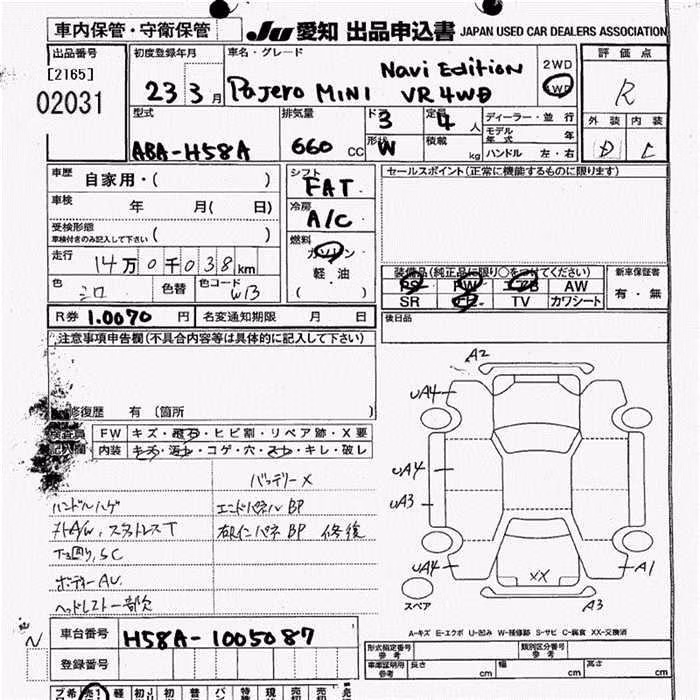 車内保管・守衛保管
JU 愛知 出品申込書 JAPAN USED CAR DEALERS ASSOCIATION
出品番号
[2165]
02031
初度登録年月
23 3 月
車名・グレード
Navi Edition
Pajero MINI VR 4WD
2WD
4WD
評価点
R
外装 内装
D C
型式
ABA-H58A
排気量
660 CC
ドア
3
形状
W
定員
4 人
積載
kg
ディーラー・並行
モデル年式 年
ハンドル 左・右
車歴
自家用・( )
車検
年 月( 日)
受検形態
車検付きのみ記入して下さい ( )
走行
14万0千038km
色
シロ
色替
色コード
WB
R券 1.0070 円 名変通知期限 月 日
シフト
FAT
冷房
A/C
燃料
ガソリン
軽・油
( )
セールスポイント(正常に機能するものに限ります)
装備品(純正品に限り○をつけてください)
PS PW エアB AW
SR TV カワシート
新車保証書
有・無
後日品
注意事項申告欄(不具合内容等は具体的に記入して下さい)
修復歴 有 〔箇所 〕
検査員
記入欄
FW キズ・飛石・ヒビ割・リペア跡・X要
内装 キズ・汚れ・コゲ・穴・スレ・キレ・破レ
バッテリーX
ハンドルハゲ
エンドパネル BP
スタットレスT
右 BP 修復
下廻り、SC
ボディーAU.
ヘッドレスト一部欠
A2
UA4
UA4
UA3
UA4
XX
A1
A3
スペア
A-キズ E-エクボ U-凹み W-補修跡 S-サビ C-腐食 XX-交換済
N
車台番号 H58A-1005087
登録番号
形式指定番号 参考
類別区分番号 参考
車庫証明用 参考 長さ cm 幅 cm 高さ cm